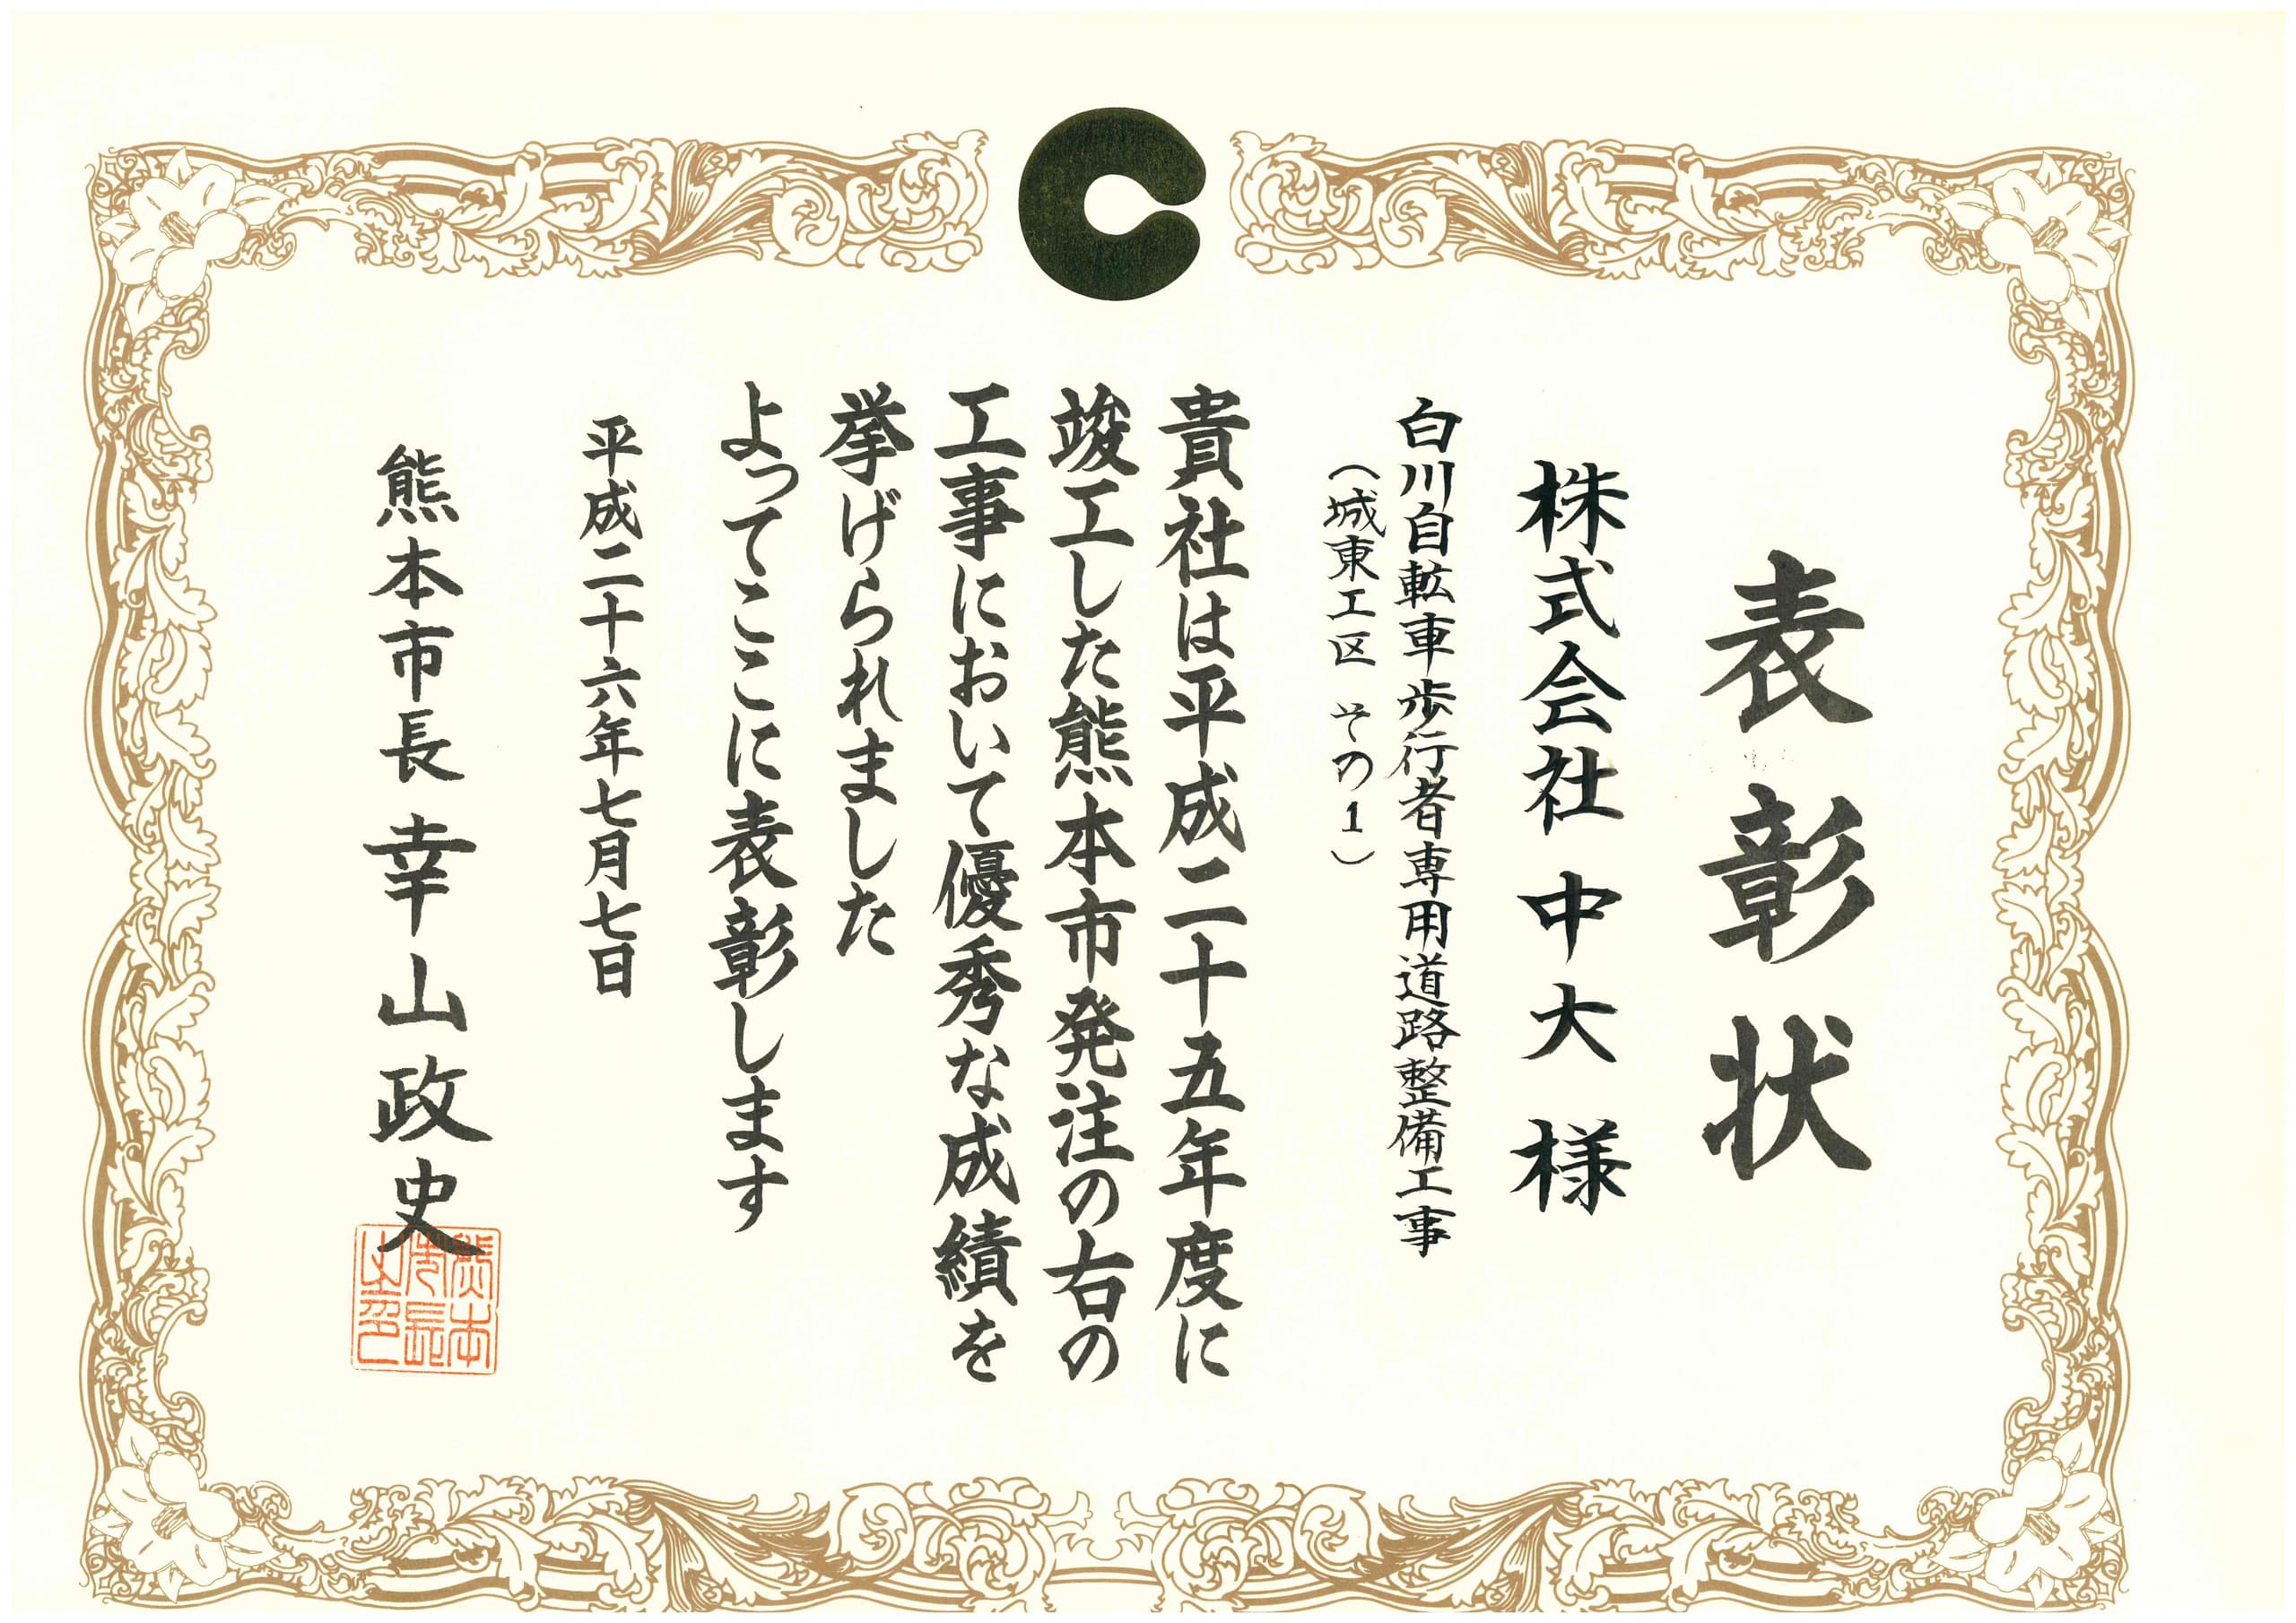 表彰状
株式会社 中大 様
白川自転車歩行者専用道路整備工事
（城東工区 その1）
貴社は平成二十五年度に
竣工した熊本市発注の右の
工事において優秀な成績を
挙げられました
よってここに表彰します
平成二十六年七月七日
熊本市長 幸山政史
熊本市長之印